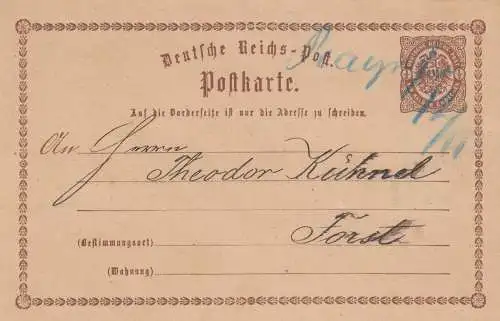 Deutsche Reichs-Post.
Postkarte.
Auf die Vorderseite ist nur die Adresse zu schreiben.
An Herrn
Theodor Kühnel
Forst
(Bestimmungsort)
(Wohnung)